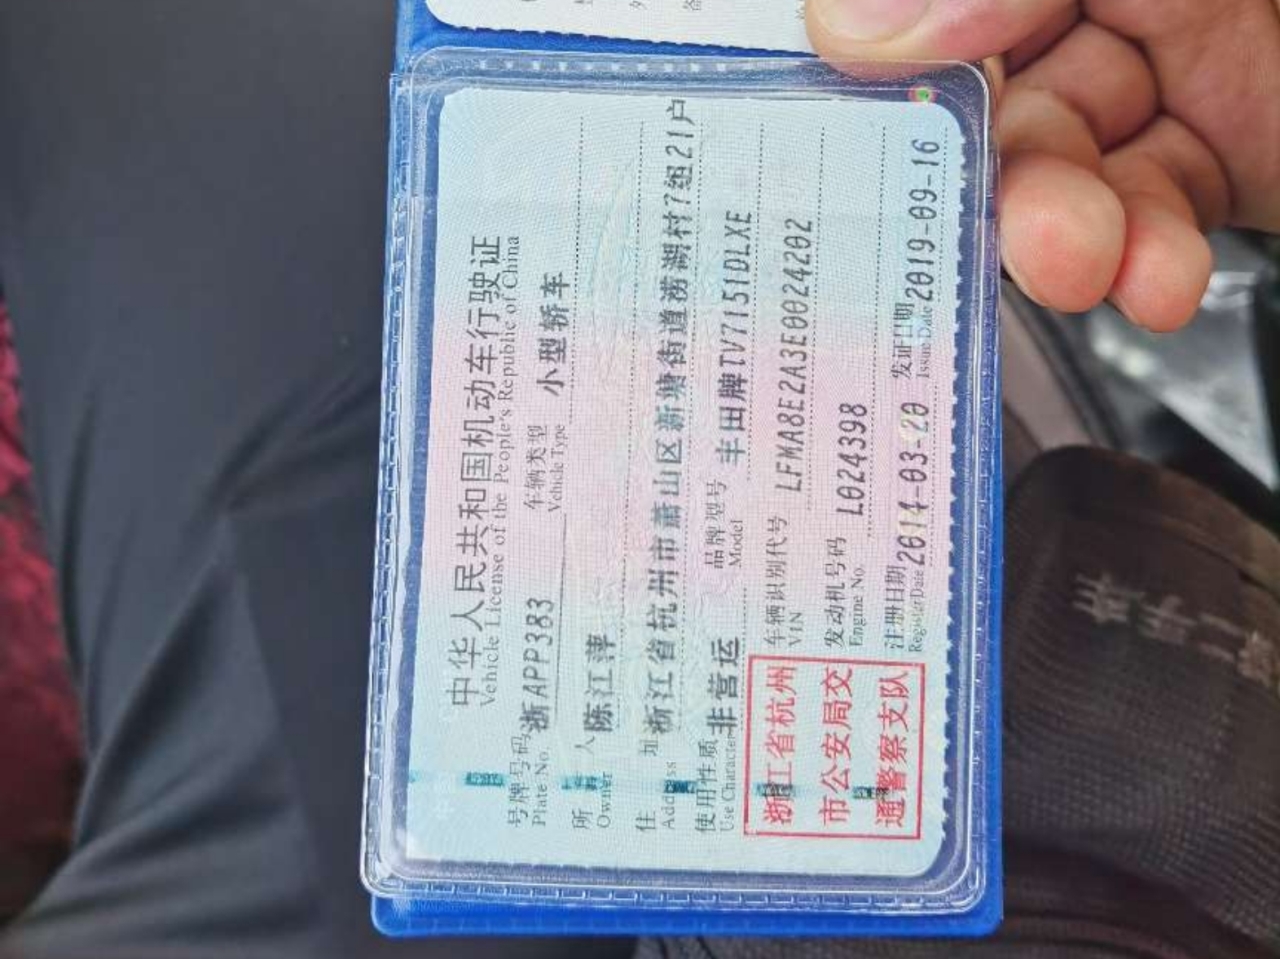 中华人民共和国机动车行驶证
Vehicle License of the People's Republic of China
号牌号码 浙APP383 车辆类型 小型轿车
Plate No. Vehicle Type
所有人 陈江萍
Owner
住址 浙江省杭州市萧山区新塘街道涝湖村7组21户
Address
使用性质 非营运 品牌型号 丰田牌TV7151DLXE
Use Character Model
浙江省杭州
市公安局交
通警察支队
车辆识别代号 LFMA8E2A3E0024202
VIN
发动机号码 L024398
Engine No.
注册日期 2014-03-20 发证日期 2019-09-16
Register Date Issue Date